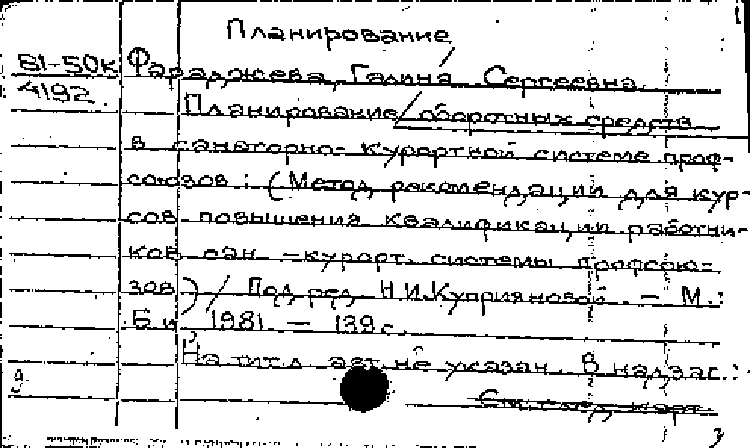 Планирование
81-50к Фараджева, Галина Сергеевна.
4192. Планирование оборотных средств
в санаторно-курортной системе проф-
союзов : (Метод. рекомендации для кур-
сов повышения квалификации работни-
ков сан.-курорт. системы профсою-
зов) / Под ред. Н.И.Куприяновой. — М.:
Б.и, 1981. — 139с.
На тит.л. авт. не указан. В надзаг.:
9
См. след. карт.